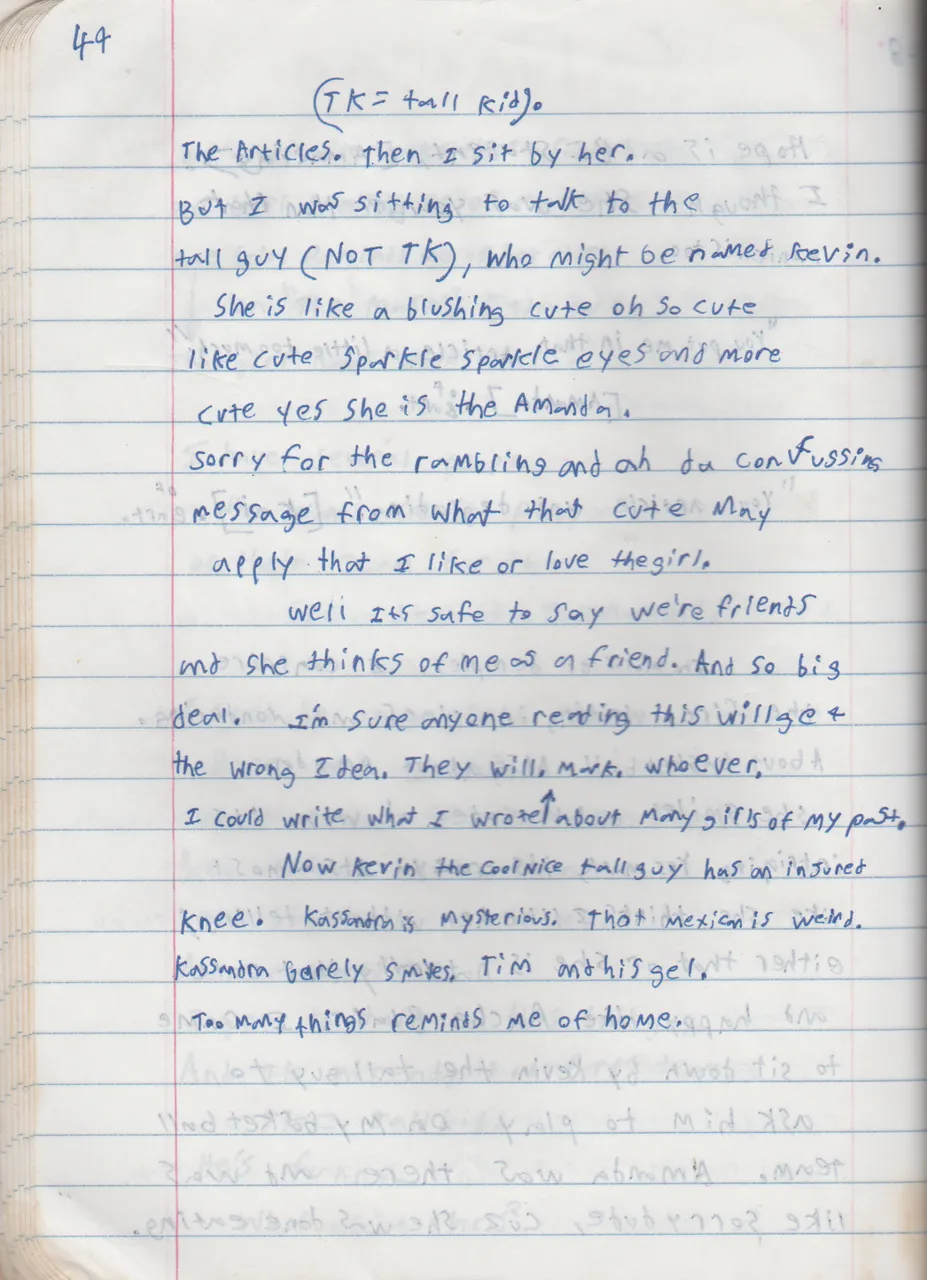 44
(TK = tall kid).
The Articles. Then I sit by her.
But I was sitting to talk to the
tall guy (NOT TK), who might be named Kevin.
She is like a blushing cute oh so cute
like cute sparkle sparkle eyes and more
cute yes she is the Amanda.
Sorry for the rambling and ah da confussing
message from what that cute may
apply that I like or love the girl.
Well Its safe to say we're friends
and she thinks of me as a friend. And so big
deal. I'm sure anyone reading this will get
the wrong Idea. They will. Mark. Whoever.
I could write what I wrote↑ about many girls of my past.
Now Kevin the cool nice tall guy has an insured
knee. Kassandra is mysterious. That mexican is weird.
Kassandra barely smiles. Tim and his gel.
Too many things reminds me of home.